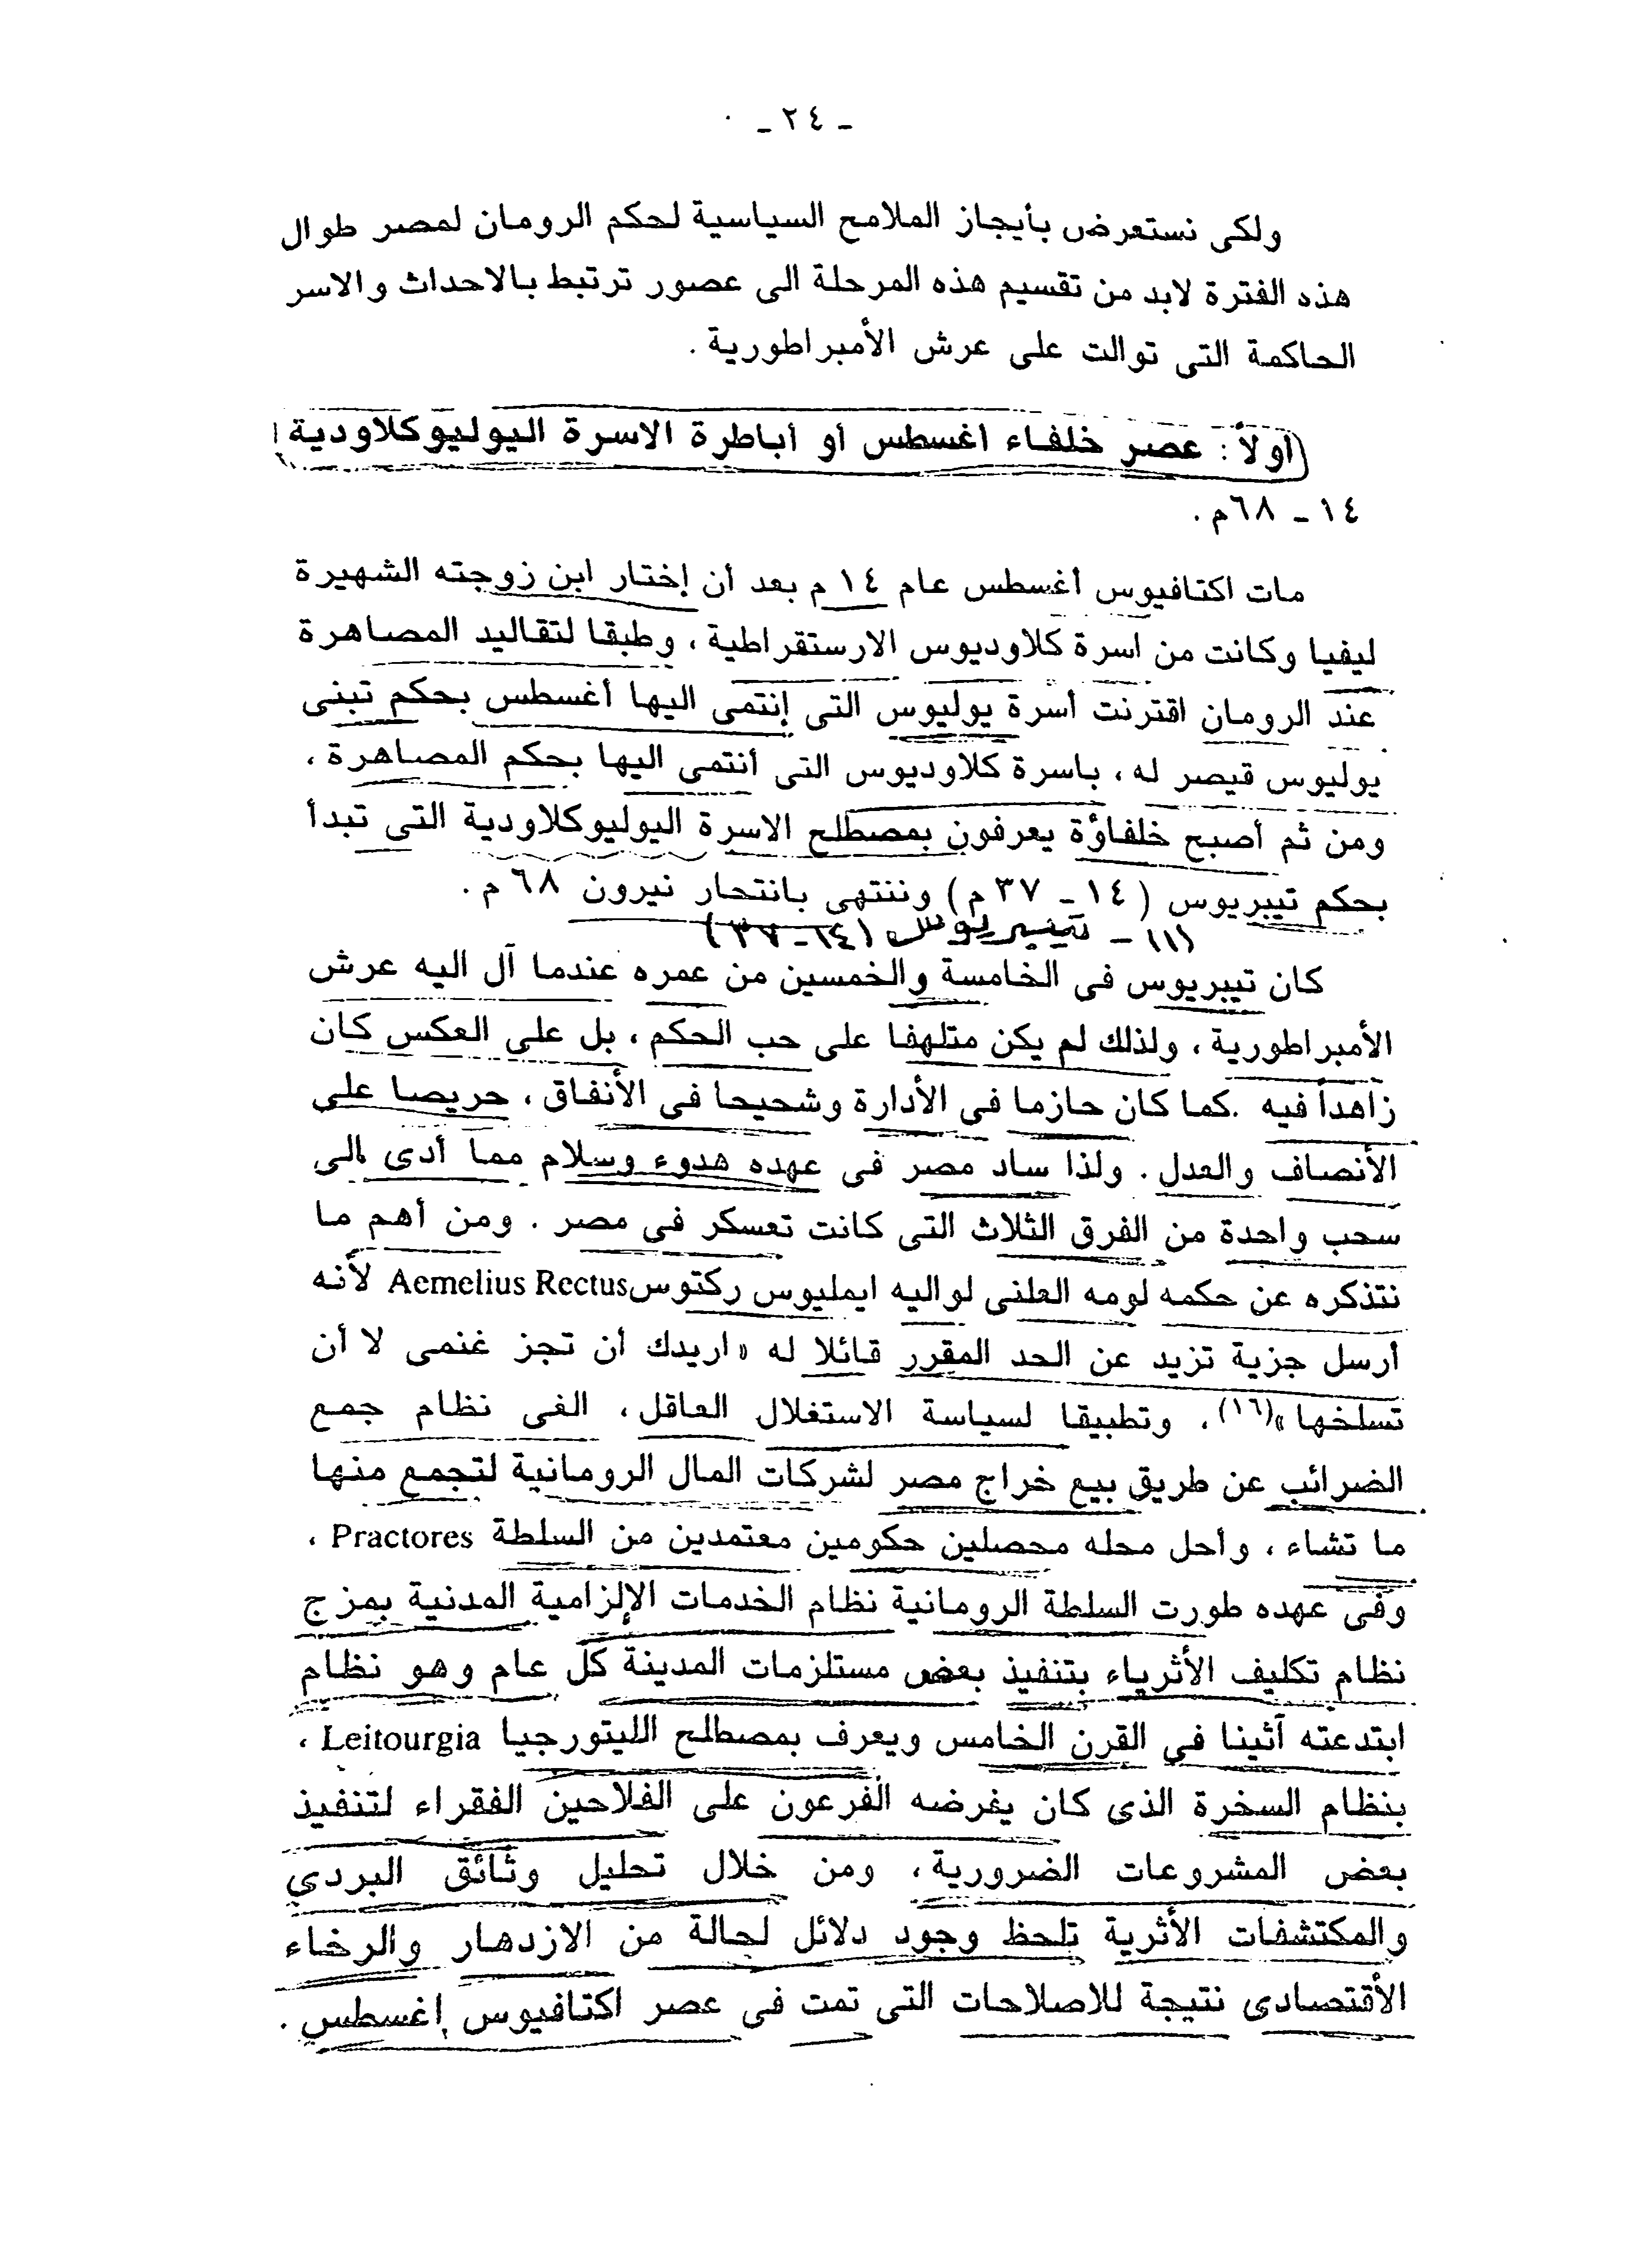 ـ ٢٤ ـ
ولكى نستعرض بأيجاز الملامح السياسية لحكم الرومان لمصر طوال
هذه الفترة لابد من تقسيم هذه المرحلة الى عصور ترتبط بالاحداث والاسر
الحاكمة التى توالت على عرش الأمبراطورية .
أولاً : عصر خلفاء أغسطس أو أباطرة الاسرة اليوليوكلاودية
١٤ ـ ٦٨م .
مات اكتافيوس أغسطس عام ١٤ م بعد أن إختار ابن زوجته الشهيرة
ليفيا وكانت من اسرة كلاوديوس الارستقراطية ، وطبقا لتقاليد المصاهرة
عند الرومان اقترنت أسرة يوليوس التى إنتمى اليها أغسطس بحكم تبنى
يوليوس قيصر له ، باسرة كلاوديوس التى أنتمى اليها بحكم المصاهرة ،
ومن ثم أصبح خلفاؤة يعرفون بمصطلح الاسرة اليوليوكلاودية التى تبدأ
بحكم تيبريوس ( ١٤ ـ ٣٧ م ) وننتهى بانتحار نيرون ٦٨ م .
(١) - تيبيريوس (١٤-٣٧)
كان تيبريوس فى الخامسة والخمسين من عمره عندما آل اليه عرش
الأمبراطورية ، ولذلك لم يكن متلهفا على حب الحكم ، بل على العكس كان
زاهداً فيه . كما كان حازما فى الأدارة وشحيحا فى الأنفاق ، حريصا على
الأنصاف والعدل . ولذا ساد مصر فى عهده هدوء وسلام مما أدى الى
سحب واحدة من الفرق الثلاث التى كانت تعسكر فى مصر . ومن أهم ما
نتذكره عن حكمه لومه العلنى لواليه ايمليوس ركتوس Aemelius Rectus لأنه
أرسل جزية تزيد عن الحد المقرر قائلا له « اريدك أن تجز غنمى لا أن
تسلخها »(١٦) . وتطبيقا لسياسة الاستغلال العاقل ، الغى نظام جمع
الضرائب عن طريق بيع خراج مصر لشركات المال الرومانية لتجمع منها
ما تشاء ، وأحل محله محصلين حكومين معتمدين من السلطة Practores ،
وفى عهده طورت السلطة الرومانية نظام الخدمات الإلزامية المدنية بمزج
نظام تكليف الأثرياء بتنفيذ بعض مستلزمات المدينة كل عام وهو نظام
ابتدعته آثينا في القرن الخامس ويعرف بمصطلح الليتورجيا Leitourgia ،
بنظام السخرة الذى كان يفرضه الفرعون على الفلاحين الفقراء لتنفيذ
بعض المشروعات الضرورية ، ومن خلال تحليل وثائق البردي
والمكتشفات الأثرية تلحظ وجود دلائل لحالة من الازدهار والرخاء
الأقتصادى نتيجة للاصلاحات التى تمت فى عصر اكتافيوس إغسطس .